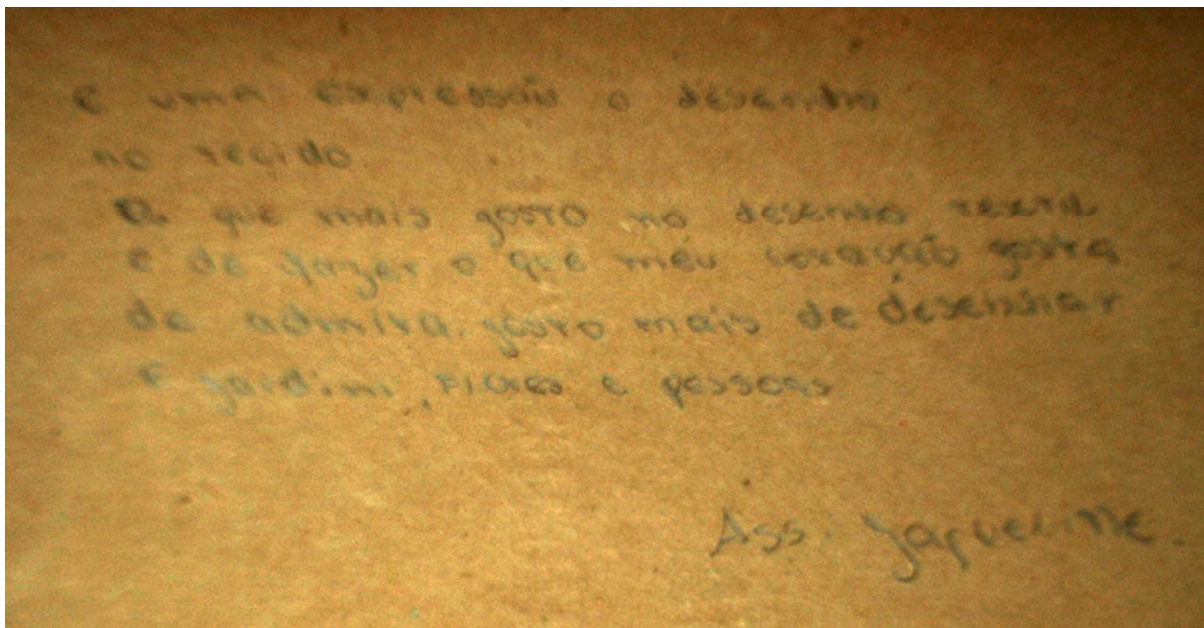 e uma expressão o desenho
no tecido
O que mais gosto no desenho textil
e de fazer o que meu coração gosta
de admira. gosto mais de desenhar
e jardim, Flores e pessoas
Ass. Jaqueline.